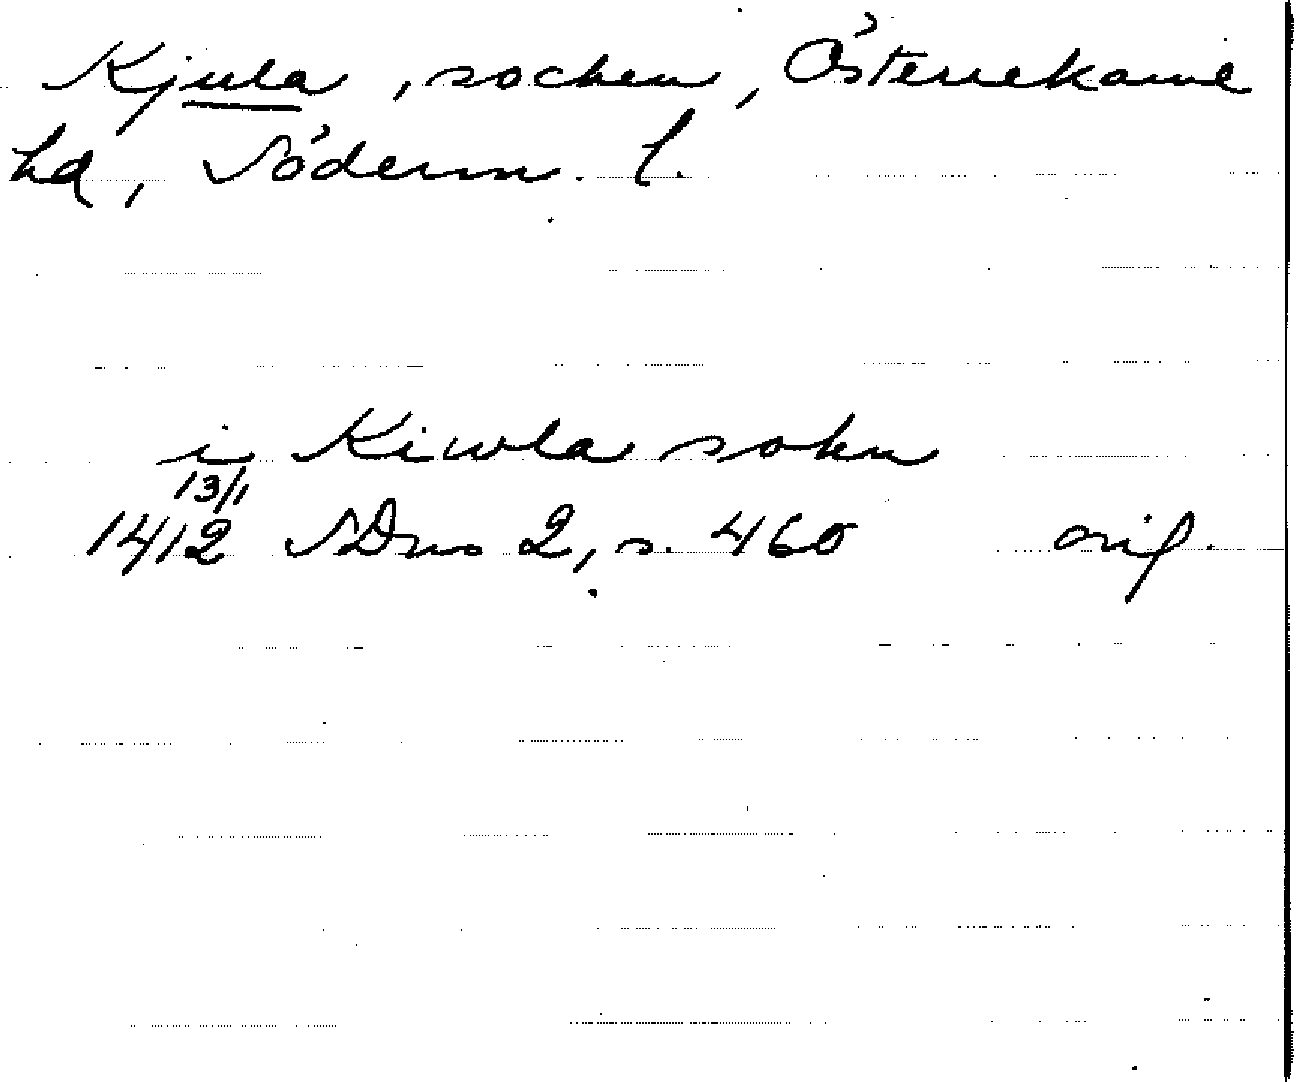 Kjula, socken, Österrekarne
hd, Söderm. l.
i Kiwla sokn
13/1
1412 SDns 2, s. 460 orig.